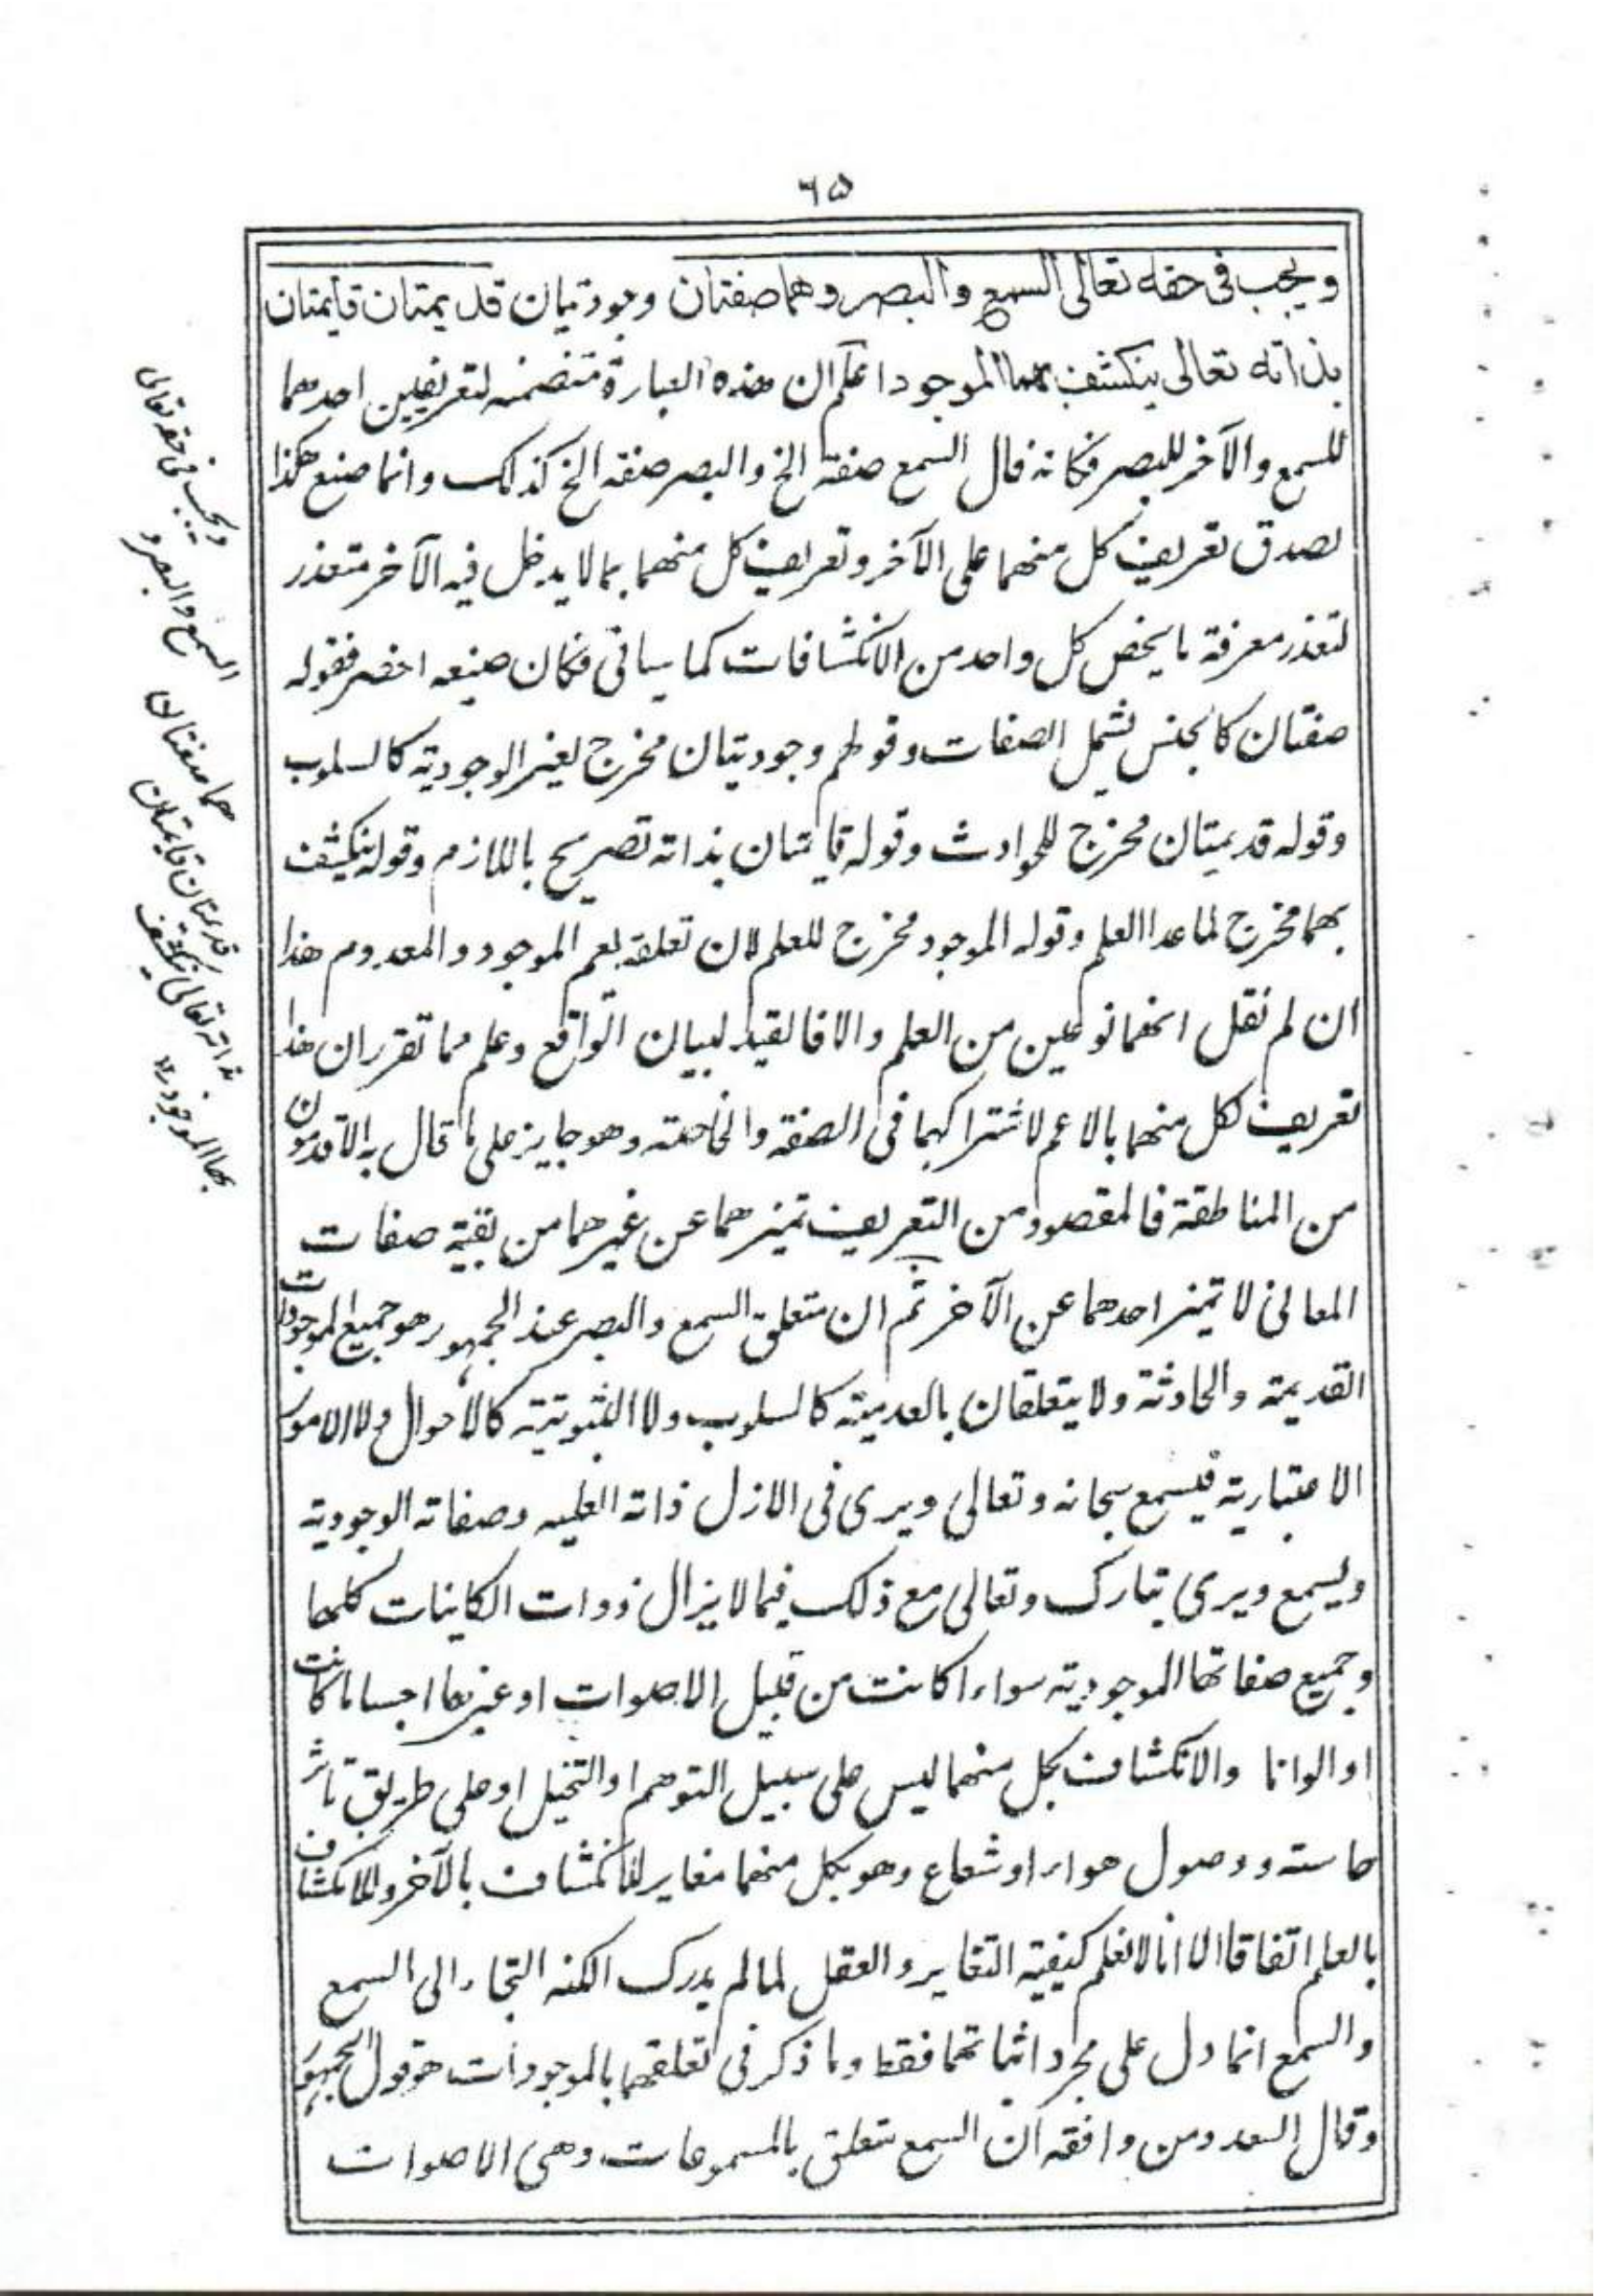 ٦٥
ويجب فى حقه تعالى السمع والبصر وهما صفتان وجوديتان قديمتان قايمتان
بذاته تعالى ينكشف بهما الموجود اعلم ان هذه العبارة متضمنه لتعريفين احدهما
للسمع والآخر للبصر فكانه قال السمع صفة الخ والبصر صفة الخ كذلك وانما صنع هكذا
لصدق تعريف كل منهما على الآخر وتعريف كل منهما بما لا يدخل فيه الآخر متعذر
لتعذر معرفة ما يخص كل واحد من الانكشافات كما سياتى فكان صنيعه اخصر فقوله
صفتان كالجنس تشمل الصفات وقولهم وجوديتان مخرج لغير الوجودية كالسلوب
وقوله قديمتان مخرج للحوادث وقوله قايمتان بذاته تصريح باللازم وقوله ينكشف
بهما مخرج لما عدا العلم وقوله الموجود مخرج للعلم لان تعلقه يعم الموجود والمعدوم هذا
ان لم نقل انهما نوعين من العلم والا فالقيد لبيان الواقع وعلم مما تقرر ان هذا
تعريف لكل منهما بالاعم لاشتراكهما فى الصفة والخاصته وهو جايز على ما قال به الاقدمون
من المناطقة فالمقصود من التعريف تميزهما عن غيرهما من بقية صفات
المعانى لا تميز احدهما عن الآخر ثم ان متعلق السمع والبصر عند الجمهور هو جميع الموجودات
القديمة والحادثة ولا يتعلقان بالعدمية كالسلوب ولا الثبوتية كالاحوال ولا الامور
الاعتبارية فيسمع سبحانه وتعالى ويرى فى الازل ذاته العليه وصفاته الوجودية
ويسمع ويرى تبارك وتعالى مع ذلك فيما لا يزال ذوات الكاينات كلها
وجميع صفاتها الموجودية سواء اكانت من قبيل الاصوات او غيرها اجساما كانت
او الوانا والانكشاف بكل منهما ليس على سبيل التوهم او التخيل او على طريق تاثر
حاسته ووصول هواء او شعاع وهو بكل منهما مغاير للانكشاف بالآخر وللانكشاف
بالعلم اتفاقا الا انا لا نعلم كيفية التغاير والعقل لما لم يدرك الكنه التجاء الى السمع
والسمع انما دل على مجرد اثباتهما فقط وما ذكر فى تعلقهما بالموجودات هو قول الجمهور
وقال السعد ومن وافقه ان السمع يتعلق بالمسموعات وهى الاصوات
ويجب فى حقه تعالى
السمع والبصر و
هما صفتان
قديمتان قايمتان
بذاته تعالى ينكشف
بهما الموجود ١٢